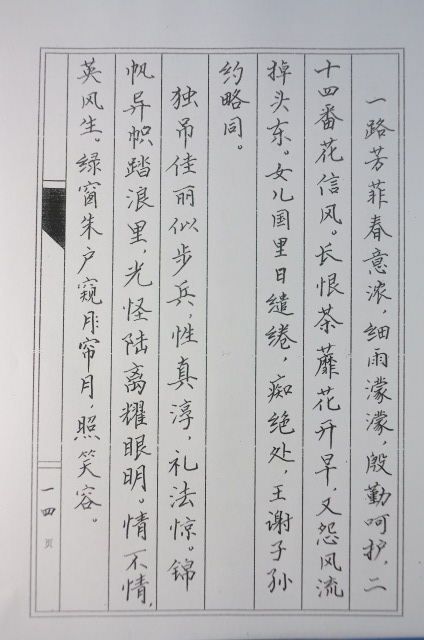 一路芳菲春意浓，细雨濛濛，殷勤呵护，二
十四番花信风。长恨荼蘼花开早，又怨风流
掉头东。女儿国里日缱绻，痴绝处，王谢子孙
约略同。
独吊佳丽似步兵，性真淳，礼法惊。锦
帆异帜踏浪里，光怪陆离耀眼明。情不情，
英风生。绿窗朱户窥彤帘月，照笑容。
一四页